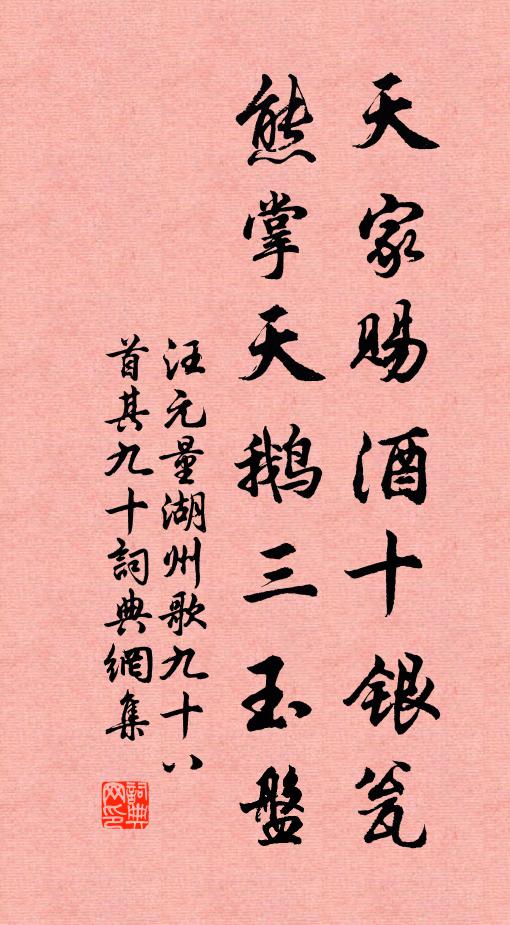 天家賜酒十銀瓮
熊掌天鹅三玉盤
汪元量湖州歌九十八
首其九十詞典網集
詞典网印